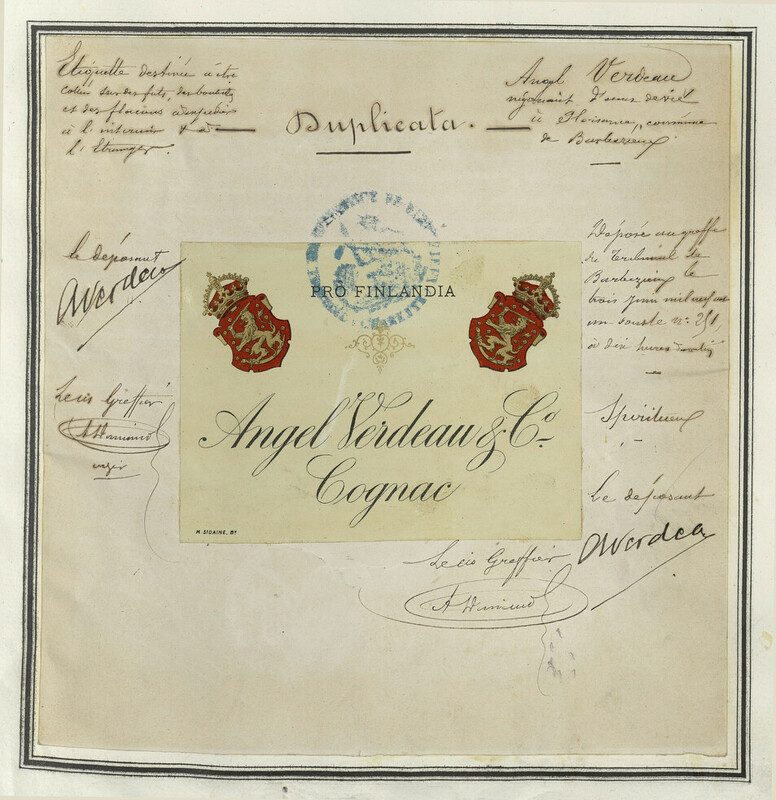 Etiquette destinée à être
collée sur des fûts, des bouteilles
et des flacons à expédier
à l'intérieur & à
l'Etranger.
Duplicata.
Angel Verdeau
négociant d'eaux de vie
à Plaisance, commune
de Barbezieux
le déposant
AVerdeau
Le cis Greffier
PRO FINLANDIA
Angel Verdeau & Co.
Cognac
M. SIDAINE, Bx
Déposé au greffe
du Tribunal de
Barbezieux le
trois juin mil neuf cent
un sous le n° 251,
à dix heures du matin
Spiritueux
Le déposant
AVerdeau
Le cis Greffier